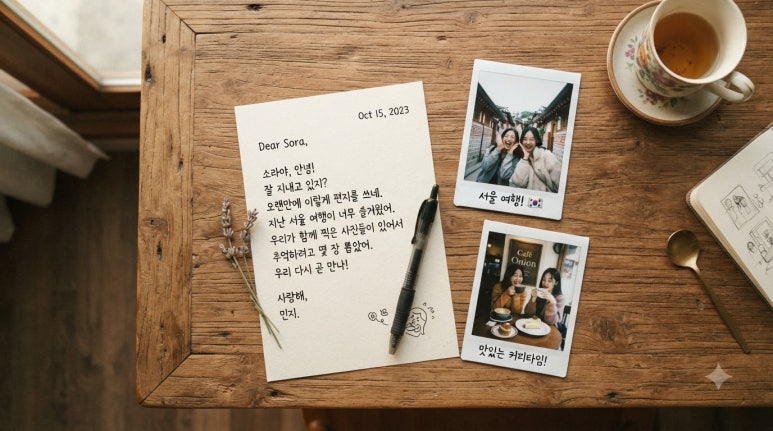 Oct 15, 2023
Dear Sora,
소라야, 안녕!
잘 지내고 있지?
오랜만에 이렇게 편지를 쓰네.
지난 서울 여행이 너무 즐거웠어.
우리가 함께 찍은 사진들이 있어서
추억하려고 몇 장 뽑았어.
우리 다시 곧 만나!
사랑해,
민지.
서울 여행! 🇰🇷
Café
Onion
맛있는 커피타임!